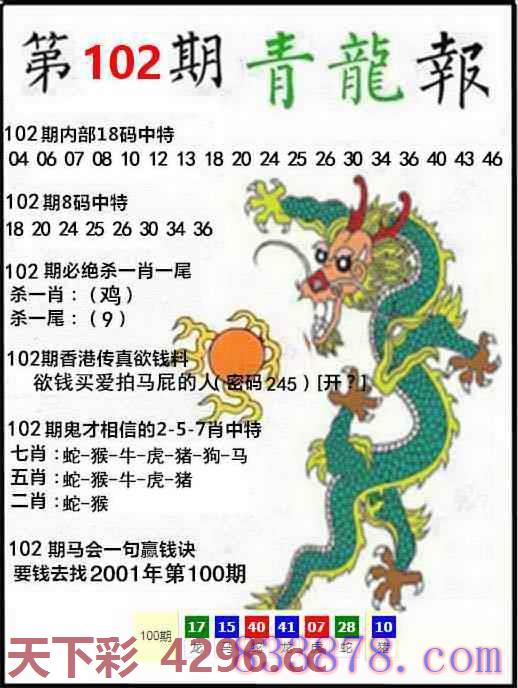 第102期青龍報
102期内部18码中特
04 06 07 08 10 12 13 18 20 24 25 26 30 34 36 40 43 46
102期8码中特
18 20 24 25 26 30 34 36
102期必绝杀一肖一尾
杀一肖：（鸡）
杀一尾：（9）
102期香港传真欲钱料
欲钱买爱拍马屁的人(密码245)[开?]
102期鬼才相信的2-5-7肖中特
七肖：蛇-猴-牛-虎-猪-狗-马
五肖：蛇-猴-牛-虎-猪
二肖：蛇-猴
102期马会一句赢钱诀
要钱去找2001年第100期
100期 17 15 40 41 07 28 10
龙 蛇 猪
天下彩 4296.cc
838878.com